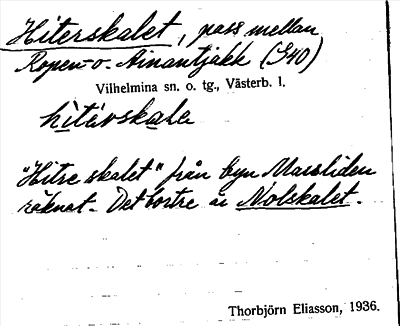 Hiterskalet, pass mellan
Ropen- o. Ainantjakk (S40)
Vilhelmina sn. o. tg., Västerb. l.
hìtə́rskalə
"Hitre skalet" från byn Marsliden
räknat. Det bortre är Nolskalet.
Thorbjörn Eliasson, 1936.